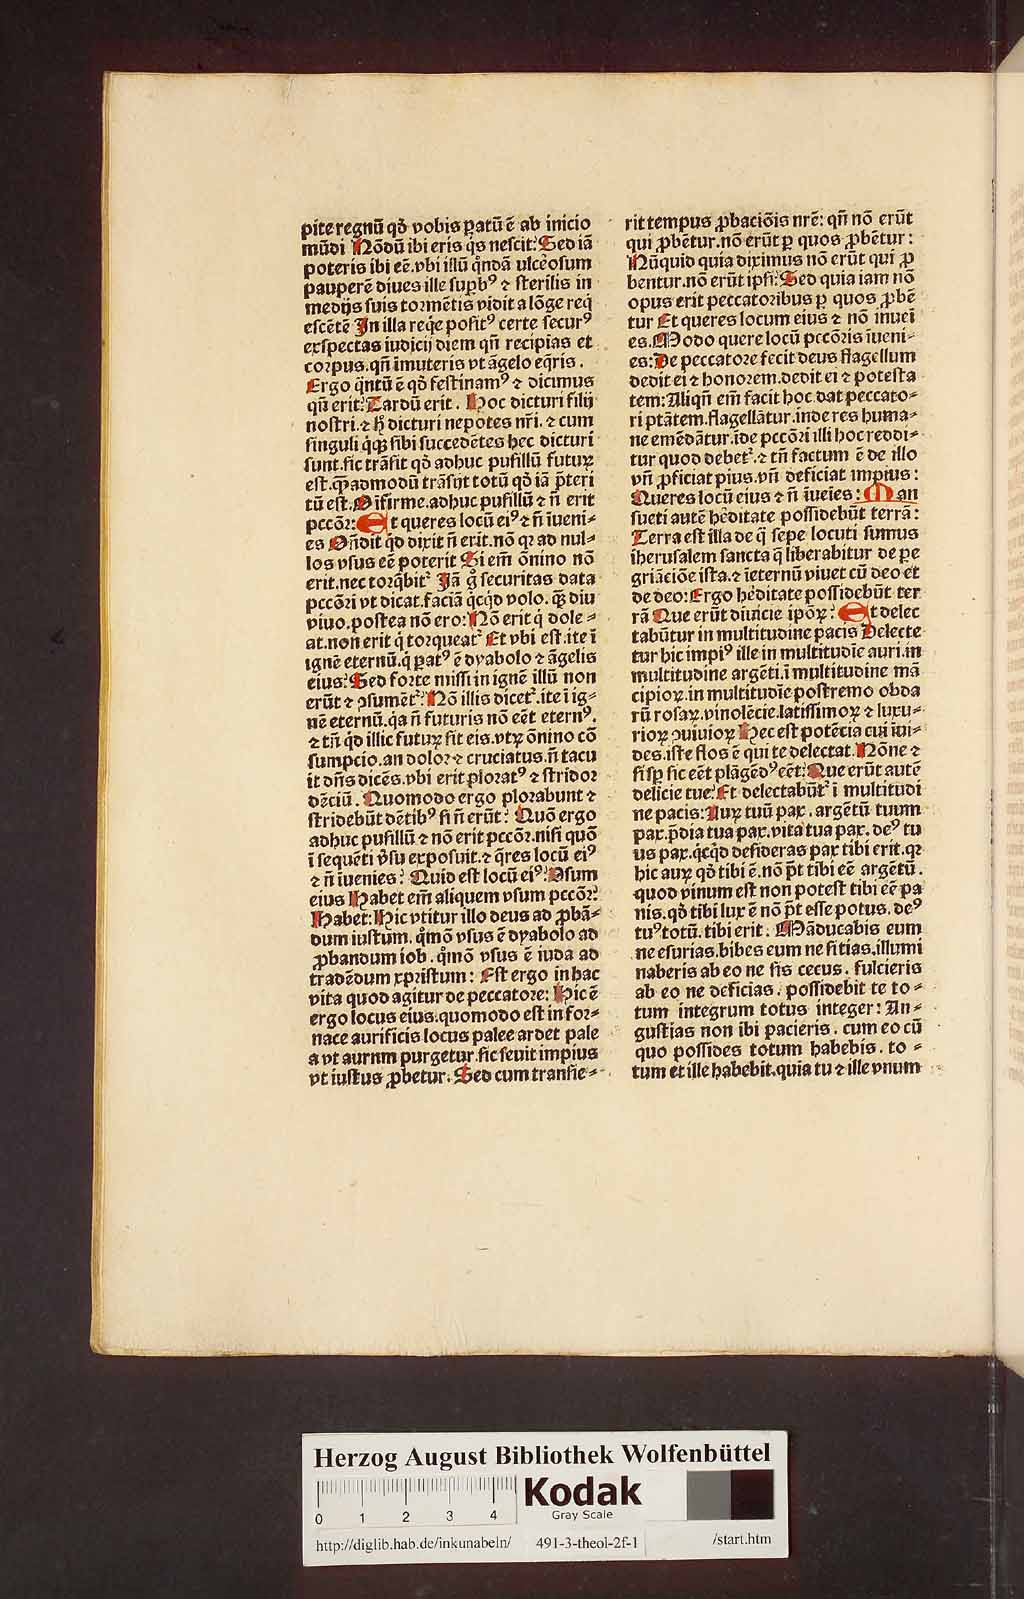 pite regnū qd̓ vobis ꝑatū ē ab inicio
mūdi Nōdū ibi eris qͥs nescit: Sed iā
poteris ibi eē. vbi illū qͦndā ulce̓osum
pauperē diues ille supb̓ꝰ ⁊ sterilis in
medijs suis tormētis vidit a lōge req̇
escētē In illa req̇e positꝰ certe securꝰ
exspectas iudicij diem qn̄ recipias et
corpus. qn̄ īmuteris vt āgelo eq̄ris.
Ergo qͣntū ē qd̓ festinamꝰ ⁊ dicimus
qn̄ erit: Tardū erit. Hoc dicturi filij
nostri. ⁊ hͦ dicturi nepotes nr̄i. ⁊ cum
singuli qͥqꝫ sibi succedētes hec dicturi
sunt. sic trāsit qd̓ adhuc pusillū futuꝝ
est. qͤadmodū trāsijt totū qd̓ iā p̄teri
tū est. O īfirme. adhuc pusillū ⁊ n̄ erit
pccōꝛ: Et queres locū eiꝰ ⁊ n̄ īueni⸗
es On̄dit qͥd dixit n̄ erit. nō qꝛ ad nul⸗
los vsus eē poterit Si em̄ ōnino nō
erit. nec torqͣbitᷣ Iā gͦ securitas data
pccōri vt dicat. faciā qͥcqͥd volo. qͣꝫ diu
viuo. postea nō ero: Nō erit qͥ dole⸗
at. non erit qͥ torqueatᷣ Et vbi est. ite ī
ignē eternū. qͥ ꝑatꝰ ē dyabolo ⁊ āgelis
eius: Sed forte missi in ignē illū non
erūt ⁊ ꝯsumētᷣ: Nō illis dicetᷣ. ite ī ig⸗
nē eternū. qͥa n̄ futuris nō eēt eternꝰ.
⁊ tn̄ qͥd illic futuꝝ sit eis. vtꝝ ōnino cō
sumpcio. an dolor ⁊ cruciatus. n̄ tacu
it dn̄s dicēs. vbi erit ploratꝰ ⁊ stridor
dēciū. Quomodo ergo plorabunt ⁊
stridebūt dētibꝰ si n̄ erūt: Quō ergo
adhuc pusillū ⁊ nō erit pccōꝛ. nisi quō
ī sequēti v̓su exposuit. ⁊ qͥres locū eiꝰ
⁊ n̄ īuenies: Quid est locū eiꝰ: Vsum
eius Habet em̄ aliquem vsum pccōꝛ:
Habet: Hic vtitur illo deus ad ꝓbā⸗
dum iustum. qͦmō vsus ē dyabolo ad
ꝓbandum iob. qͦmō vsus ē iuda ad
tradēdum xpristum: Est ergo in hac
vita quod agitur de peccatore: Hic ē
ergo locus eius. quomodo est in for⸗
nace aurificis locus palee ardet pale
a vt aurnm purgetur. sic seuit impius
vt iustus ꝓbetur. Sed cum transie⸗
rit tempus ꝓbaciōis nrē: qn̄ nō erūt
qui ꝓbētur. nō erūt ꝑ quos ꝓbētur:
Nūquid quia diximus nō erūt qui ꝓ
bentur. nō erūt ipsi: Sed quia iam nō
opus erit peccatoribus ꝑ quos ꝓbē
tur Et queres locum eius ⁊ nō inueī
es. Modo quere locū pccōris īueni⸗
es: De peccatore fecit deus flagellum
dedit ei ⁊ honorem. dedit ei ⁊ potesta
tem: Aliqn̄ em̄ facit hoc dat peccato⸗
ri ptātem. flagellātur. inde res huma⸗
ne emēdātur. īde pccōri illi hoc reddi⸗
tur quod debetᷣ. ⁊ tn̄ factum ē de illo
vn̄ ꝓficiat pius. vn̄ deficiat impius:
Queres locū eius ⁊ n̄ īueīes: Man
sueti autē he̓ditate possidebūt terrā:
Terra est illa de qͣ sepe locuti sumus
iherusalem sancta q̄ liberabitur de pe
griāciōe ista. ⁊ ieternū viuet cū deo et
de deo: Ergo he̓ditate possidebūt ter
rā Que erūt diuicie ipōꝝ: Et delec
tabūtur in multitudine pacis Delecte
tur hic impiꝰ ille in multitudīe auri. in
multitudine argēti. ī multitudine mā
cipioꝝ. in multitudīe postremo obda
rū rosaꝝ. vinolēcie. latissimoꝝ ⁊ luxu⸗
rioꝝ ꝯuiuioꝝ Hec est potēcia cui īui⸗
des. iste flos ē qui te delectat. Nōne ⁊
si sꝑ sic eēt plāgēdꝰ eēt: Que erūt autē
delicie tue: Et delectabūtᷣ ī multitudi
ne pacis: Auꝝ tuū pax. argētū tuum
pax. p̄dia tua pax. vita tua pax. deꝰ tu
us pax. qͥcqͥd desideras pax tibi erit. qꝛ
hic auꝝ qd̓ tibi ē. nō p̄t tibi eē argētū.
quod vinum est non potest tibi eē pa
nis. qd̓ tibi lux ē nō p̄t esse potus. deꝰ
tuꝰ totū. tibi erit: Māducabis eum
ne esurias. bibes eum ne sitias. illumi
naberis ab eo ne sis cecus. fulcieris
ab eo ne deficias. possidebit te to⸗
tum integrum totus integer: An⸗
gustias non ibi pacieris. cum eo cū
quo possides totum habebis. to⸗
tum et ille habebit. quia tu ⁊ ille vnum
Herzog August Bibliothek Wolfenbüttel
0 1 2 3 4
Kodak
Gray Scale
http://diglib.hab.de/inkunabeln/ 491-3-theol-2f-1 /start.htm